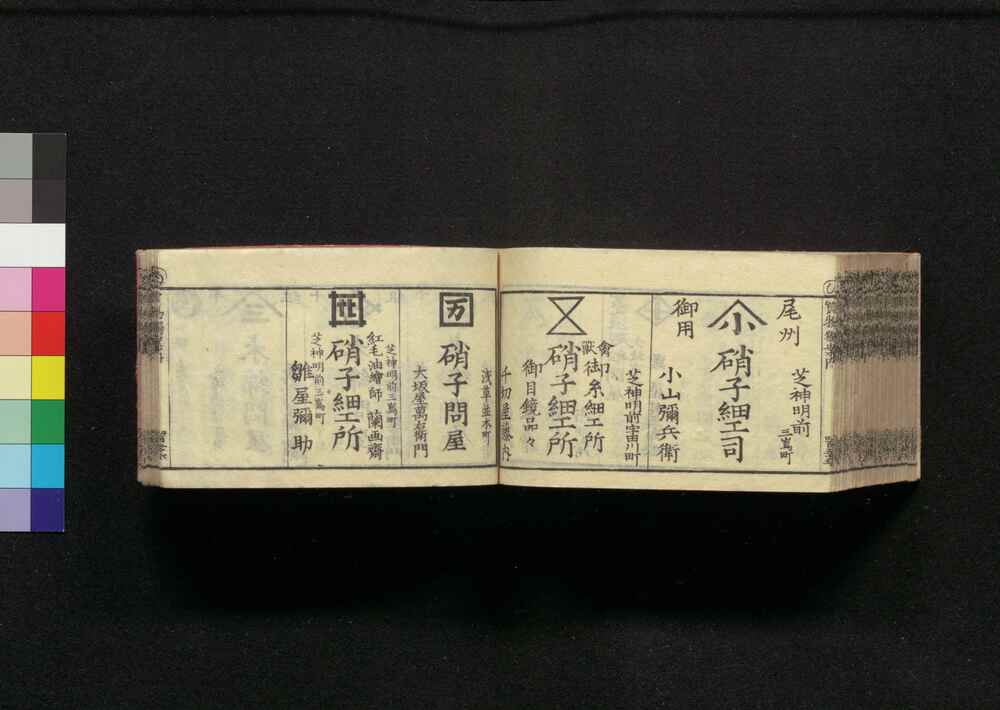 尾州
御用
小
硝子細工司
芝神明前
三嶌町
小山彌兵衛
芝神明前宇田川町
禽獣
御糸細工所
硝子細工所
御目鏡品々
浅草並木町
千切屋藤内
万
硝子問屋
大坂屋萬右衛門
芝神明前三嶌町
紅毛油繪師 蘭画齋
硝子細工所
芝神明前三嶌町
雛屋彌助